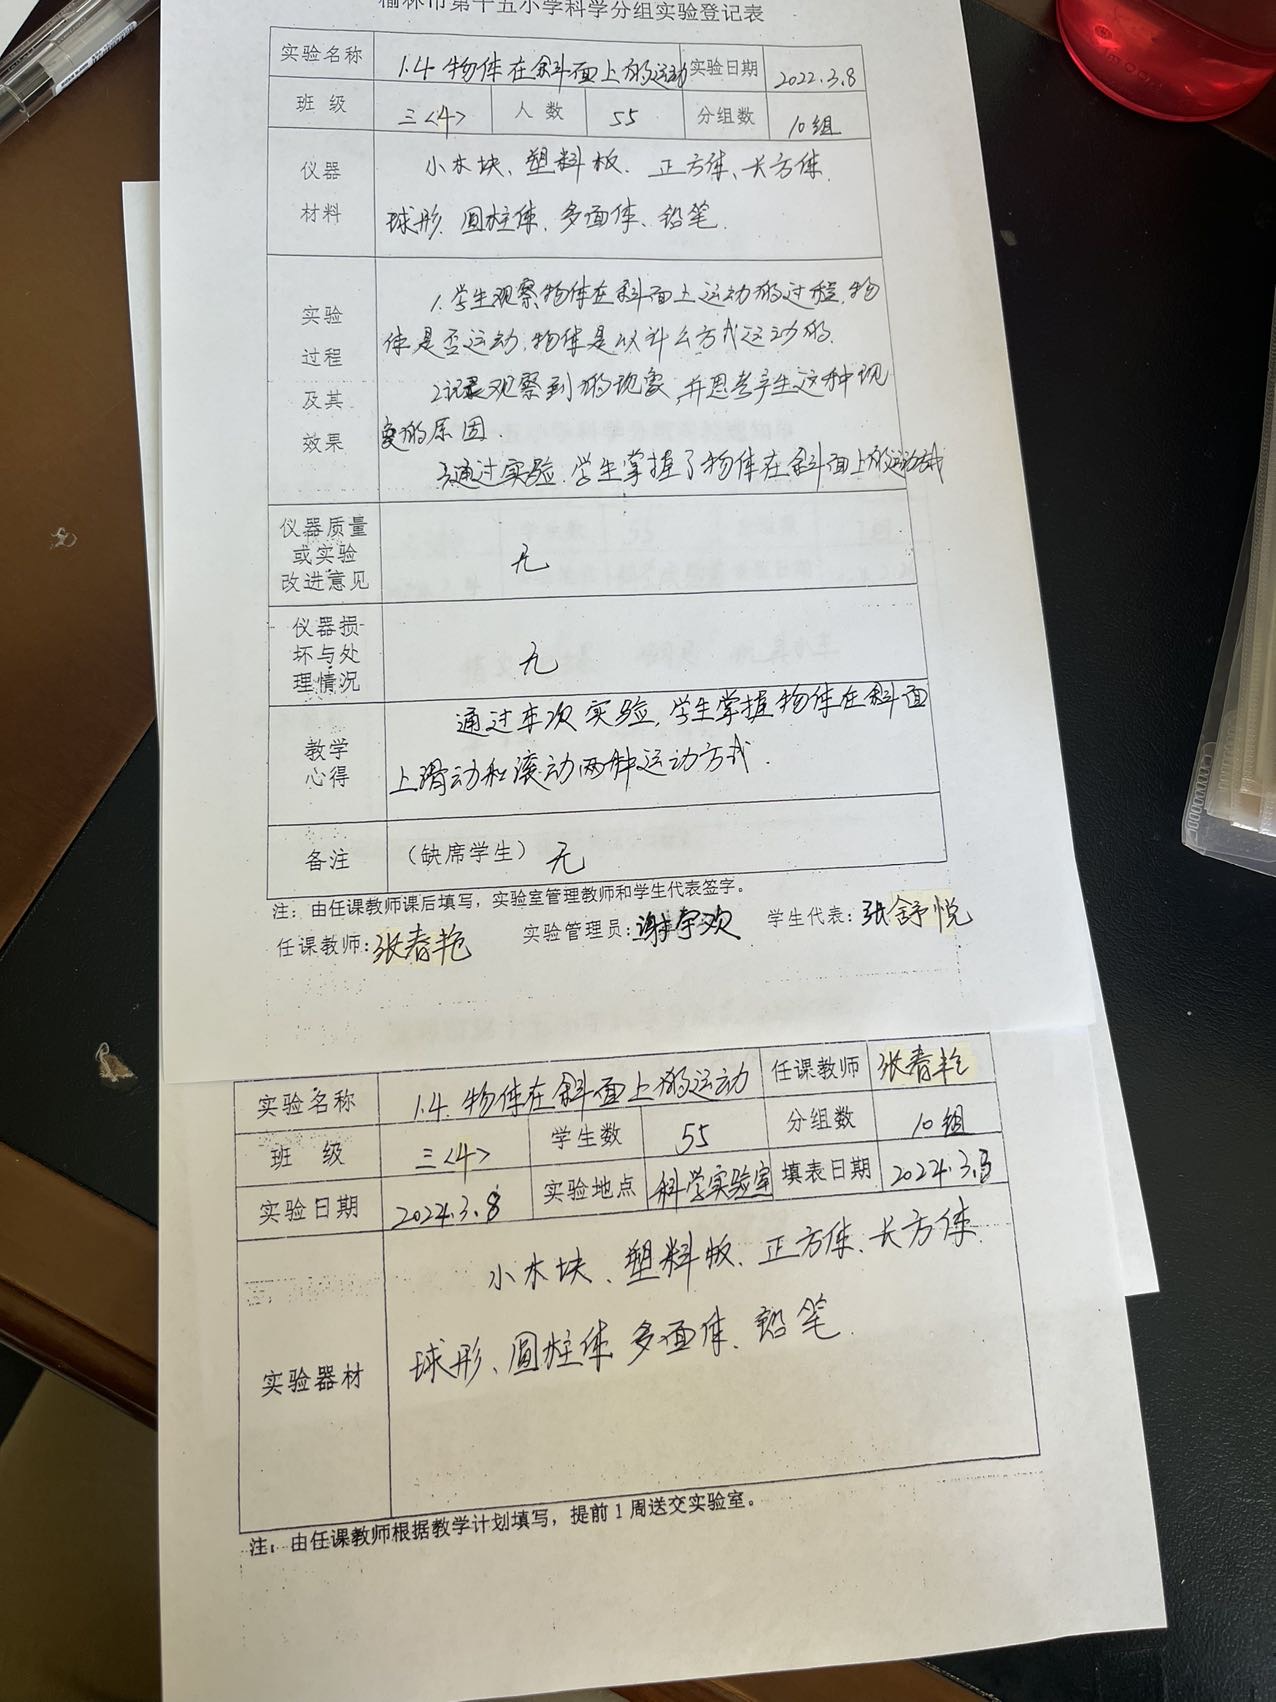 榆林市第十五小学科学分组实验登记表
实验名称 1.4 物体在斜面上的运动 实验日期 2022.3.8
班 级 三<4> 人 数 55 分组数 10组
仪器材料
小木块、塑料板、正方体、长方体、
球形、圆柱体、多面体、铅笔.
实验过程及其效果
1.学生观察物体在斜面上运动的过程,物
体是否运动,物体是以什么方式运动的.
2.记录观察到的现象,并思考产生这种现
象的原因.
3.通过实验,学生掌握了物体在斜面上的运动方式
仪器质量或实验改进意见 无
仪器损坏与处理情况 无
教学心得
通过本次实验,学生掌握物体在斜面
上滑动和滚动两种运动方式.
备注 （缺席学生） 无
注：由任课教师课后填写，实验室管理教师和学生代表签字。
任课教师:张春艳 实验管理员: 学生代表:张舒悦
实验名称 1.4.物体在斜面上的运动 任课教师 张春艳
班 级 三<4> 学生数 55 分组数 10组
实验日期 2022.3.8 实验地点 科学实验室 填表日期 2022.3.
实验器材
小木块、塑料板、正方体、长方体、
球形、圆柱体、多面体、铅笔.
注：由任课教师根据教学计划填写，提前1周送交实验室。